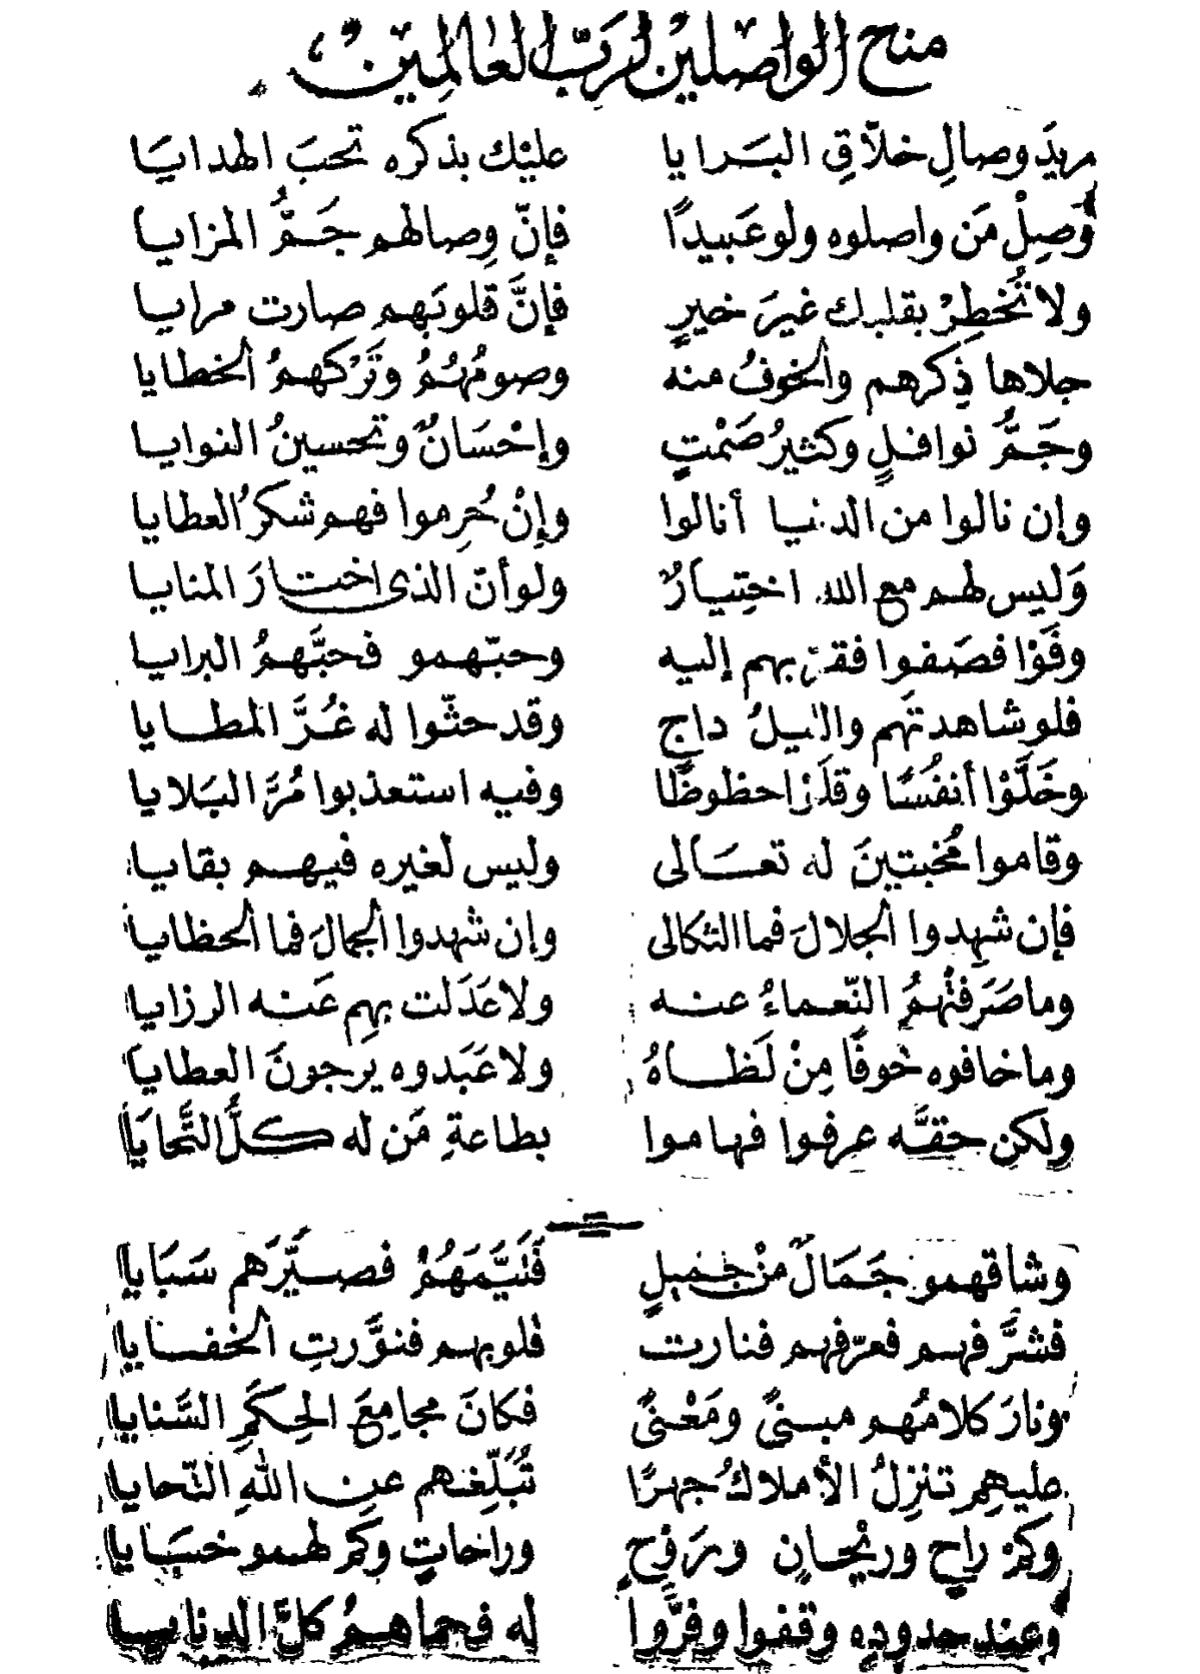 منح الواصلين لربّ العالمين
مريدَ وصالِ خلاّقِ البَرايا عليْك بذكره تحبَ الهدايَا
وَصِلْ مَن واصلوه ولو عَبيدًا فإنّ وِصالهم جَمُّ المزايا
ولا تُخطِرْ بقلبك غيرَ خيرٍ فإنَّ قلوبَهم صارت مرايا
جلاها ذِكرهم والخوفُ منه وصومُهُمُ وتَرْكهمُ الخطايا
وجَمُّ نوافلٍ وكثيرُ صَمْتٍ وإحْسَانٌ وتحسينُ النوايا
وإن نالوا من الدنيا أنالوا وإنْ حُرِموا فهم شكرُ العطايا
وَليس لهم مع الله اختِيارٌ ولو أنّ الذى اختارَ المنايا
وفَوْا فصَفوا فقرّبهم إليه وحبّهمو فحبَّهمُ البرايا
فلو شاهدتَهم والليلُ داجٍ وقد حثّوا له غُرَّ المطايا
وخَلَّوْا أنفُسًا وقلَوْا حظوظًا وفيه استعذبوا مُرَّ البَلايا
وقاموا مُخبتينَ له تعَالى وليس لغيره فيهم بقايا
فإن شهِدوا الجلالَ فما الثكالى وإن شهدوا الجمالَ فما الحظايا
وما صَرَفتْهُمُ النّعماءُ عنه ولا عَدَلت بهِم عَنه الرزايا
وما خافوه خوفًا مِنْ لَظاهُ ولا عَبَدوه يرجونَ العطايَا
ولكن حقَّه عرفوا فهاموا بطاعةِ مَن له كلُّ التَّحايَا
وشاقهمو جَمَالٌ منْ جَميلٍ فَتَيَّمَهُمْ فصيَّرَهم سَبَايا
فشرَّفهم فعرّفهم فنارت قلوبهم فنوَّرتِ الخفايا
ونارَ كلامُهم مبنىً ومَعْنىً فكانَ مجامِعَ الحِكَمِ السَّنايا
عليهِم تنزِلُ الأملاكُ جهرًا تُبَلِّغهم عنِ اللهِ التّحايا
وكمْ راحٍ وريْحانٍ ورَوْحٍ وراحاتٍ وكم لهمو خبَايا
وعند حدوده وقفوا وفرُّوا له فحماهمُ كلَّ الدنايا